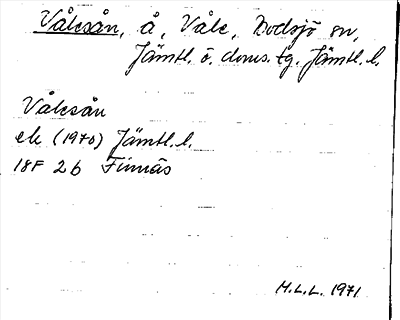 Vålcsån, å, Våle, Bodsjö sn,
Jämtl. ö. doms. tg. Jämtl. l.
Vålcsån
ek (1970) Jämtl. l.
18F 2b Finnäs
M.L.L. 1971